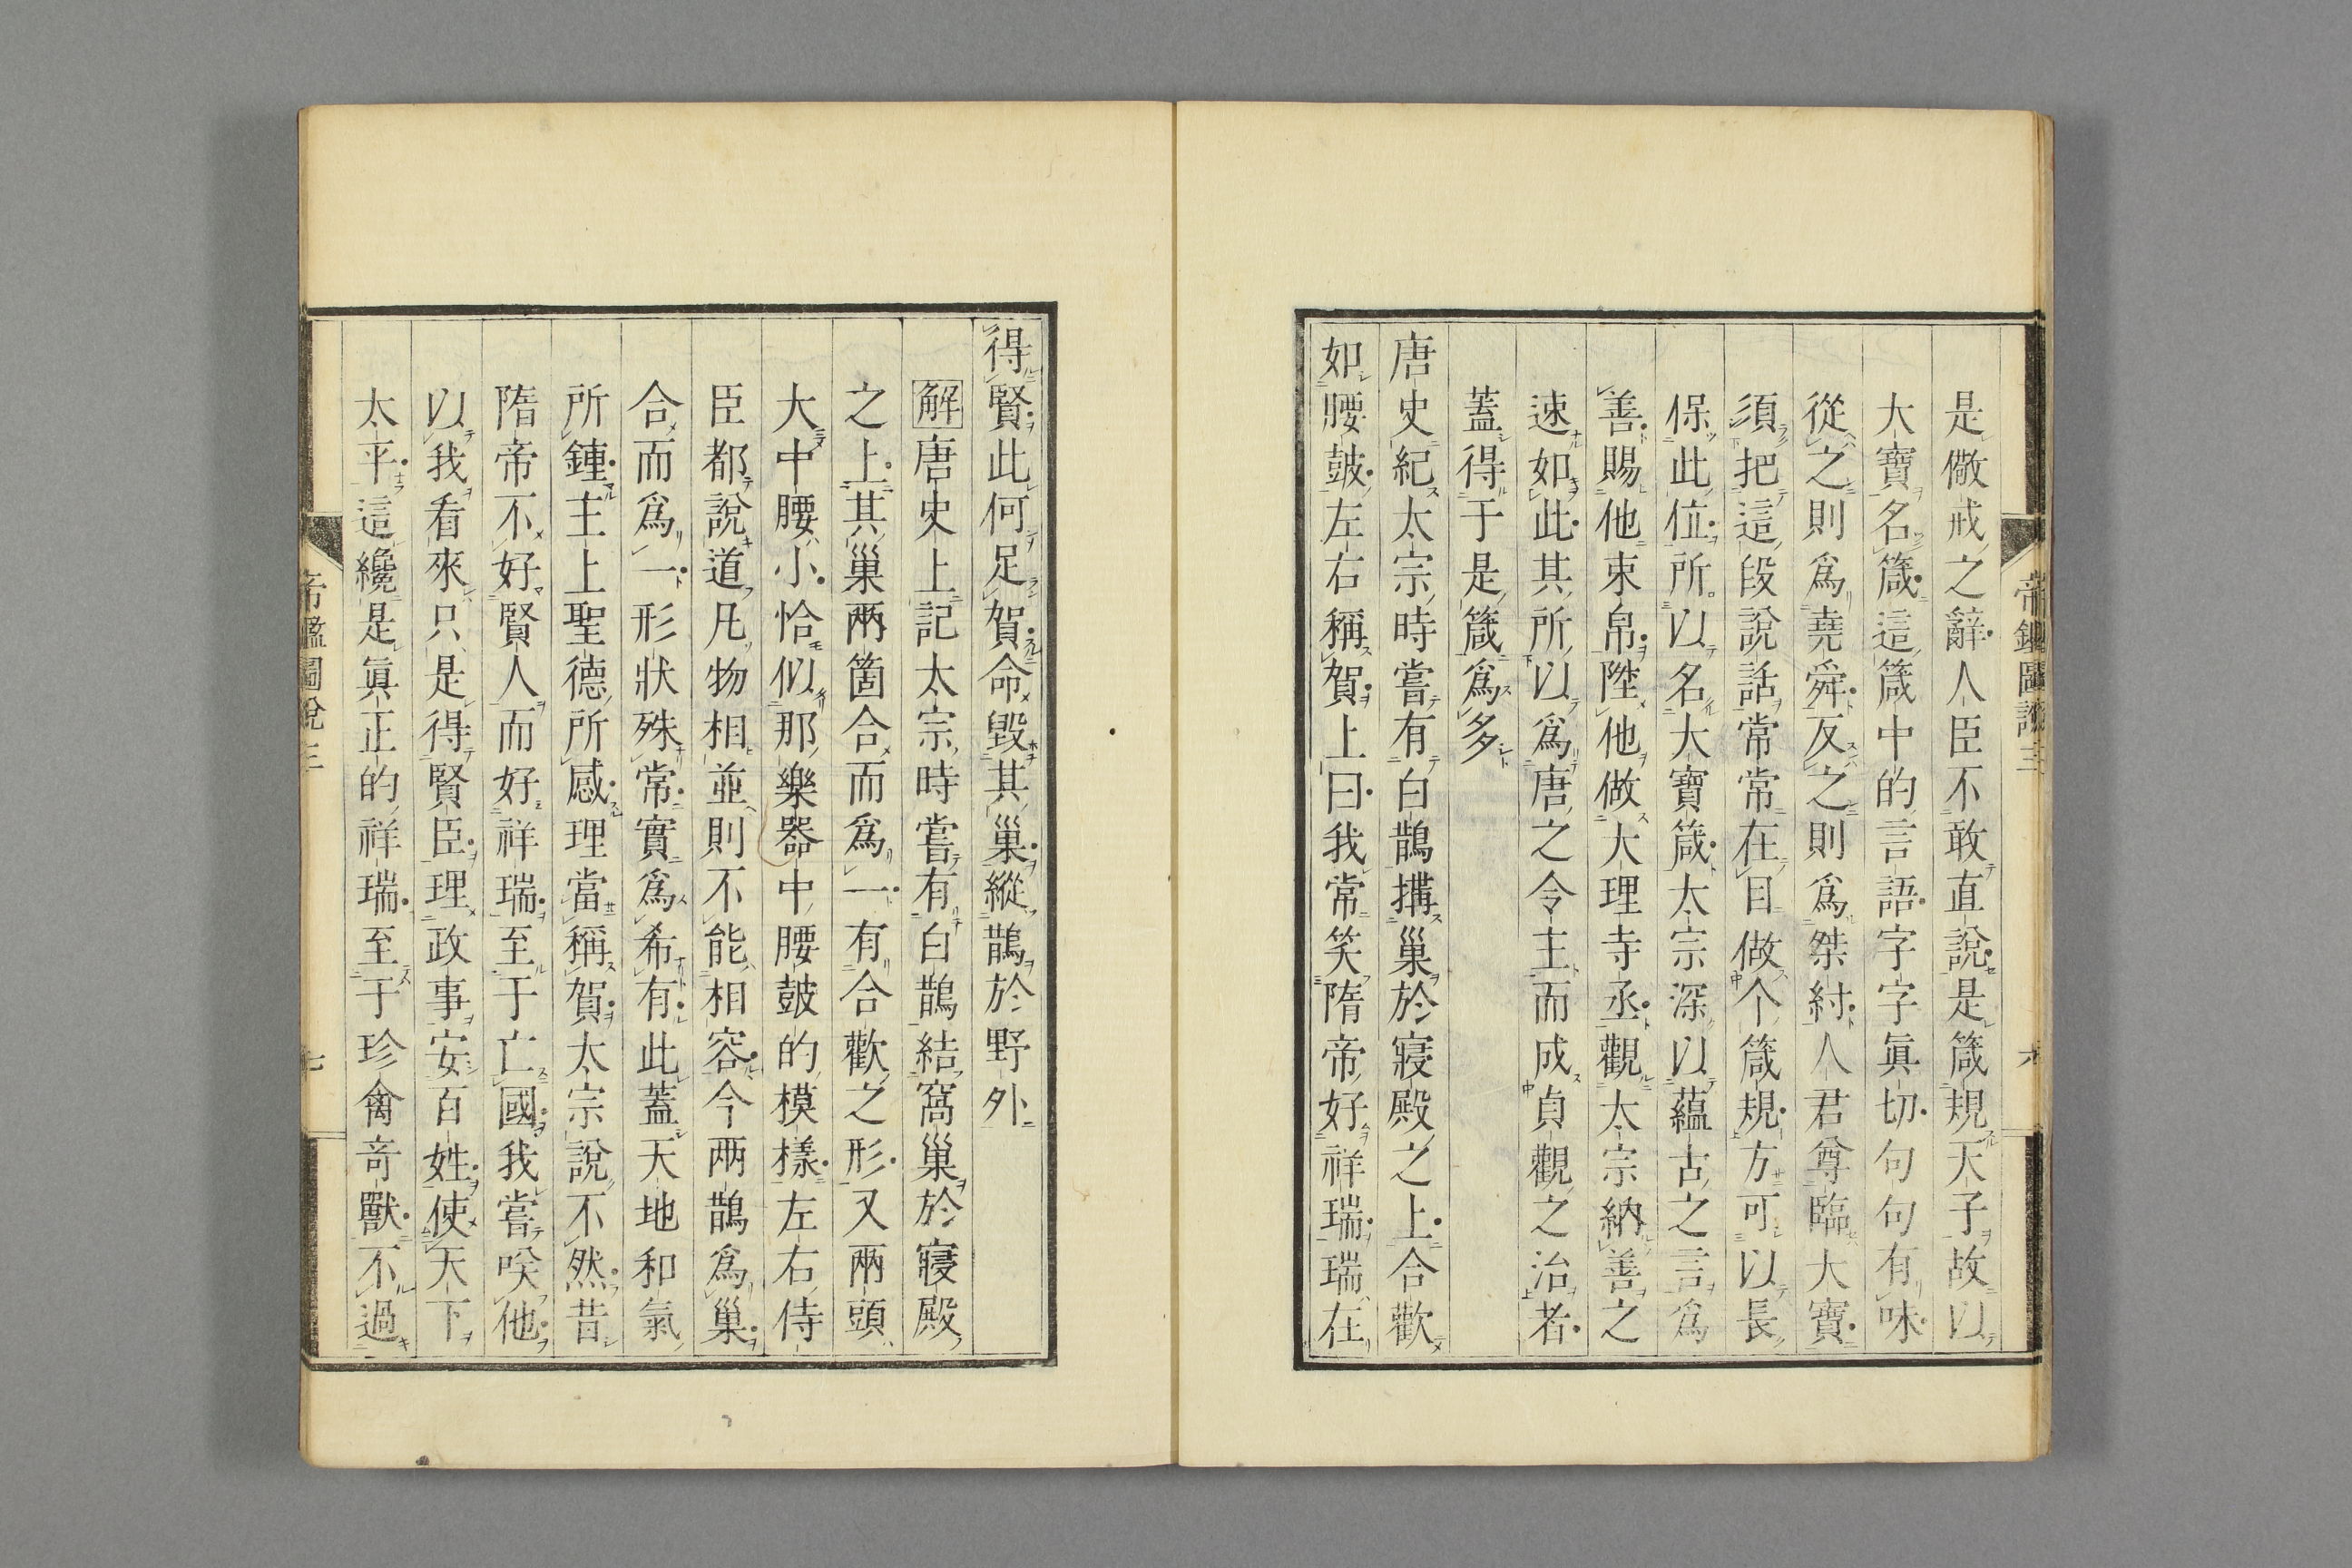 是儆戒之辭人臣不敢直說是箴規天子故以
大寶名箴這箴中的言語字字眞切句句有味
從之則爲堯舜反之則爲桀紂人君尊臨大寶
須把這段說話常常在目做个箴規方可以長
保此位所以名大寶箴太宗深以蘊古之言爲
善賜他束帛陞他做大理寺丞觀太宗納善之
速如此其所以爲唐之令主而成貞觀之治者
蓋得于是箴爲多
唐史紀太宗時嘗有白鵲搆巢於寢殿之上合歡
如腰皷左右稱賀上曰我常笑隋帝好祥瑞瑞在
得賢此何足賀命毀其巢縱鵲於野外
解唐史上記太宗時嘗有白鵲結窩巢於寢殿
之上其巢兩箇合而爲一有合歡之形又兩頭
大中腰小恰似那樂器中腰皷的模樣左右侍
臣都說道凡物相並則不能相容今兩鵲爲巢
合而爲一形狀殊常實爲希有此蓋天地和氣
所鍾主上聖德所感理當稱賀太宗說不然昔
隋帝不好賢人而好祥瑞至于亡國我嘗唉他
以我看來只是得賢臣理政事安百姓使天下
太平這纔是眞正的祥瑞至于珍禽奇獸不過
帝鑑圖說三
七